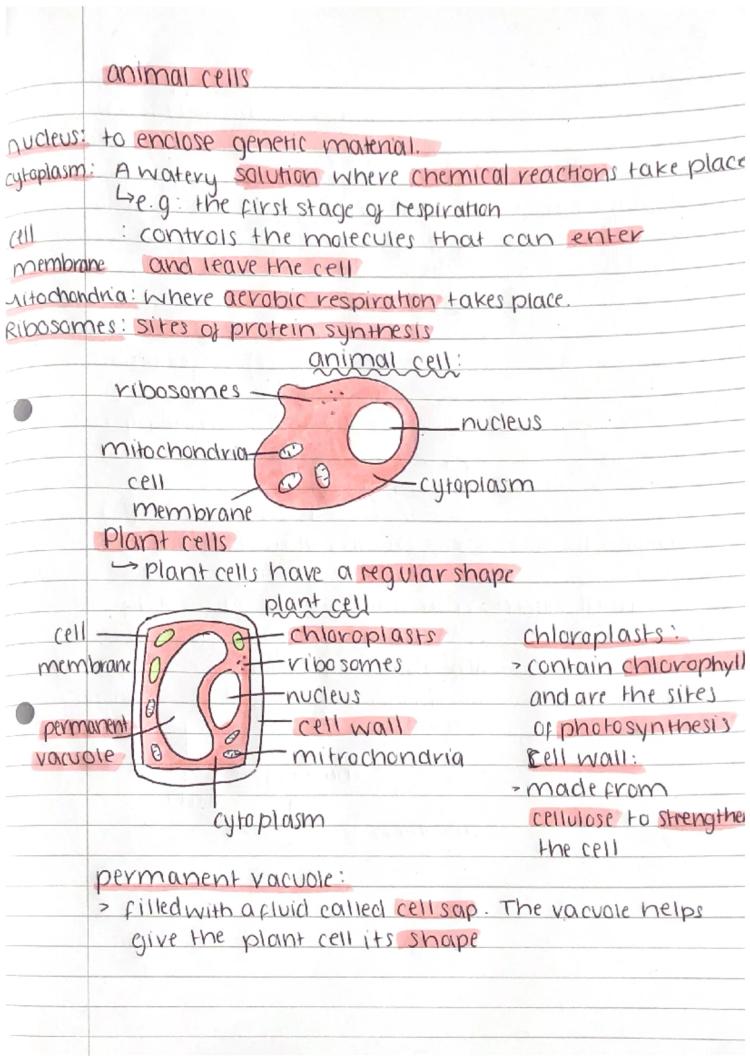 animal cells
nucleus: to enclose genetic material.
cytoplasm: A watery solution where chemical reactions take place
↳ e.g: the first stage of respiration
cell : controls the molecules that can enter
membrane and leave the cell
mitochondria: where aerobic respiration takes place.
Ribosomes: sites of protein synthesis
animal cell:
ribosomes
nucleus
mitochondria
cell
membrane
cytoplasm
Plant cells
↳ Plant cells have a regular shape
plant cell
cell
membrane
permanent
vacuole
chloroplasts
ribosomes
nucleus
cell wall
mitrochondria
cytoplasm
chloroplasts:
> contain chlorophyll
and are the sites
of photosynthesis
Cell wall:
> made from
cellulose to strengthe
the cell
permanent vacuole:
> filled with a fluid called cell sap. The vacuole helps
give the plant cell its shape